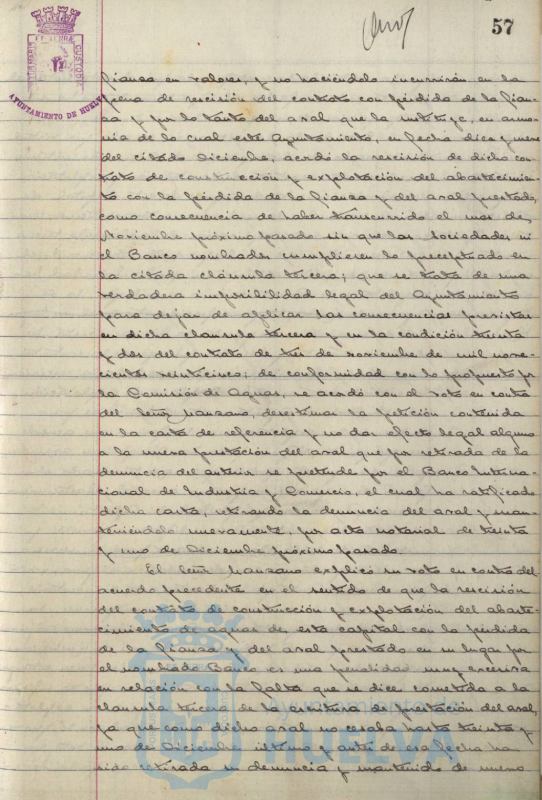 57
AYUNTAMIENTO DE HUELVA
fianza en valores, y no haciéndolo incurrirán en la
pena de rescisión del contrato con pérdida de la fian-
za y por lo tanto del aval que la sustituye, en armo-
nia de lo cual este Ayuntamiento, en fecha diez y nueve
del citado Diciembre, acordó la rescisión de dicho con-
trato de construcción y explotación del abastecimien-
to con la pérdida de la fianza y del aval prestado,
como consecuencia de haber transcurrido el mes de
Noviembre próximo pasado sin que las Sociedades ni
el Banco nombrados cumplieren lo preceptuado en
la citada cláusula tercera; que se trata de una
verdadera imposibilidad legal del Ayuntamiento
para dejar de aplicar las consecuencias previstas
en dicha clausula tercera y en la condición treinta
y dos del contrato de tres de noviembre de mil nove-
cientos veinticinco; de conformidad con lo propuesto pr.
la Comisión de Aguas, se acordó con el voto en contra
del Señor Manzano, desestimar la petición contenida
en la carta de referencia y no dar efecto legal alguno
a la nueva prestación del aval que por retirada de la
denuncia del anterior se pretende por el Banco Interna-
cional de Industria y Comercio, el cual ha ratificado
dicha carta, retirando la denuncia del aval y man-
teniéndolo nuevamente, por acta notarial de treinta
y uno de Diciembre próximo pasado.
El Señor Manzano explicó su voto en contra del
acuerdo precedente en el sentido de que la rescisión
del contrato de construcción y explotación del abaste-
cimiento de aguas de esta capital con la pérdida
de la fianza y del aval prestado en su lugar por
el nombrado Banco es una penalidad muy excesiva
en relación con la falta que se dice cometida a la
clausula tercera de la escritura de prestación del aval,
ya que como dicho aval no cesaba hasta treinta y
uno de Diciembre último y antes de esa fecha ha
sido retirada su denuncia y mantenido de nuevo
HUELVA